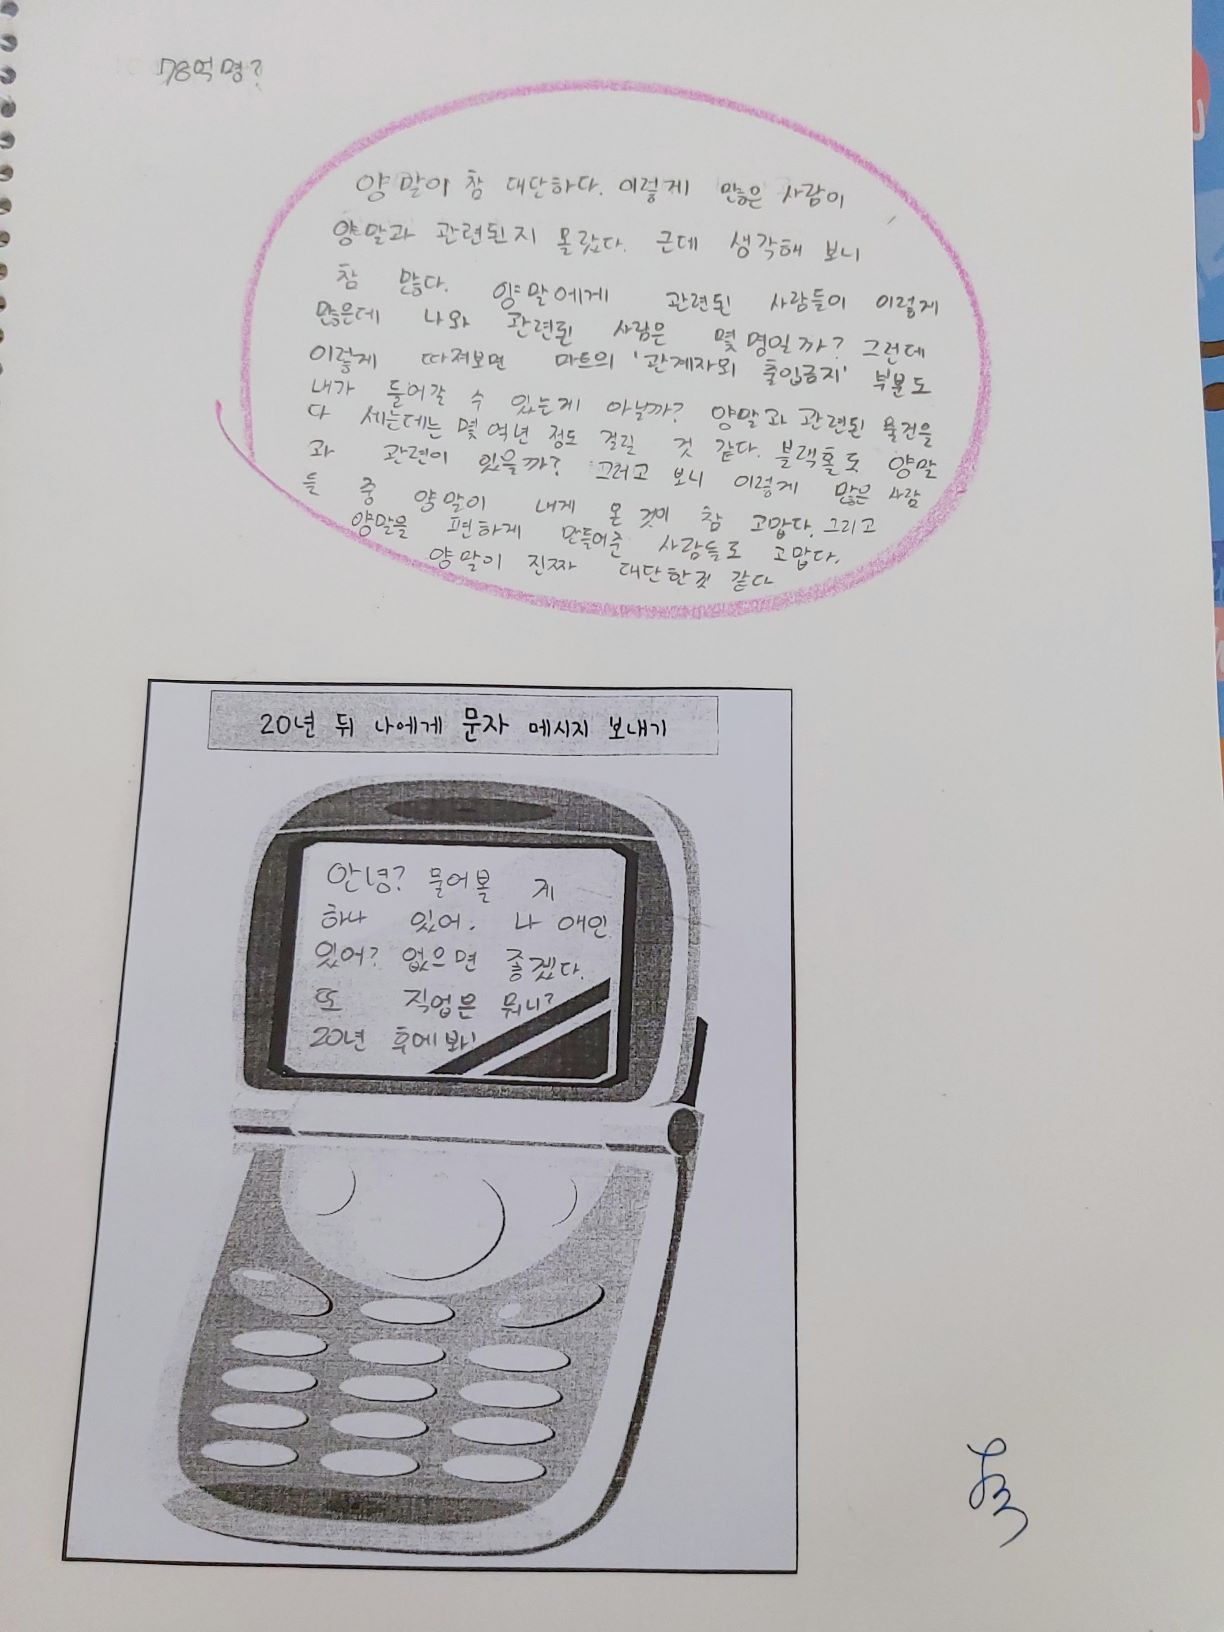 78억 명?
양말이 참 대단하다. 이렇게 많은 사람이
양말과 관련된지 몰랐다. 근데 생각해 보니
참 많다. 양말에게 관련된 사람들이 이렇게
많은데 나와 관련된 사람은 몇 명일까? 그런데
이렇게 따져보면 마트의 '관계자외 출입금지' 부분도
내가 들어갈 수 있는게 아닐까? 양말과 관련된 물건을
다 세는데는 몇 억년 정도 걸릴 것 같다. 블랙홀도 양말
과 관련이 있을까? 그러고 보니 이렇게 많은 사람
들 중 양말이 내게 온 것이 참 고맙다. 그리고
양말을 편하게 만들어준 사람들도 고맙다.
양말이 진짜 대단한것 같다
20년 뒤 나에게 문자 메시지 보내기
안녕? 물어볼 게
하나 있어. 나 애인
있어? 없으면 좋겠다.
또 직업은 뭐니?
20년 후에 봐!